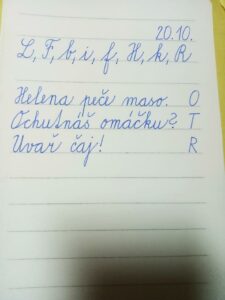 20.10.
L, F, b, i, f, H, k, R
Helena peče maso. O
Ochutnáš omáčku? T
Uvař čaj! R